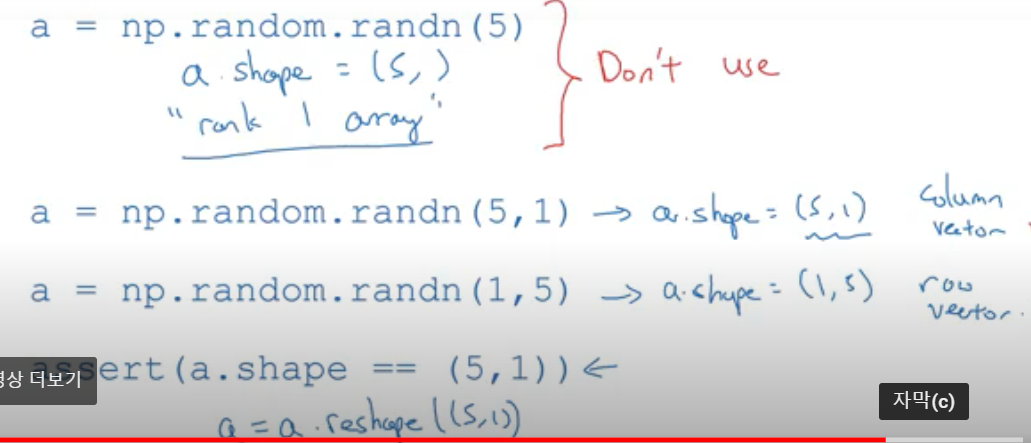 a = np.random.randn(5)
a.shape = (5,)
"rank 1 array"
Don't use
a = np.random.randn(5,1) → a.shape = (5,1) column vector
a = np.random.randn(1,5) → a.shape = (1,5) row vector.
assert(a.shape == (5,1)) ←
영상 더보기
자막(c)
a = a.reshape((5,1))